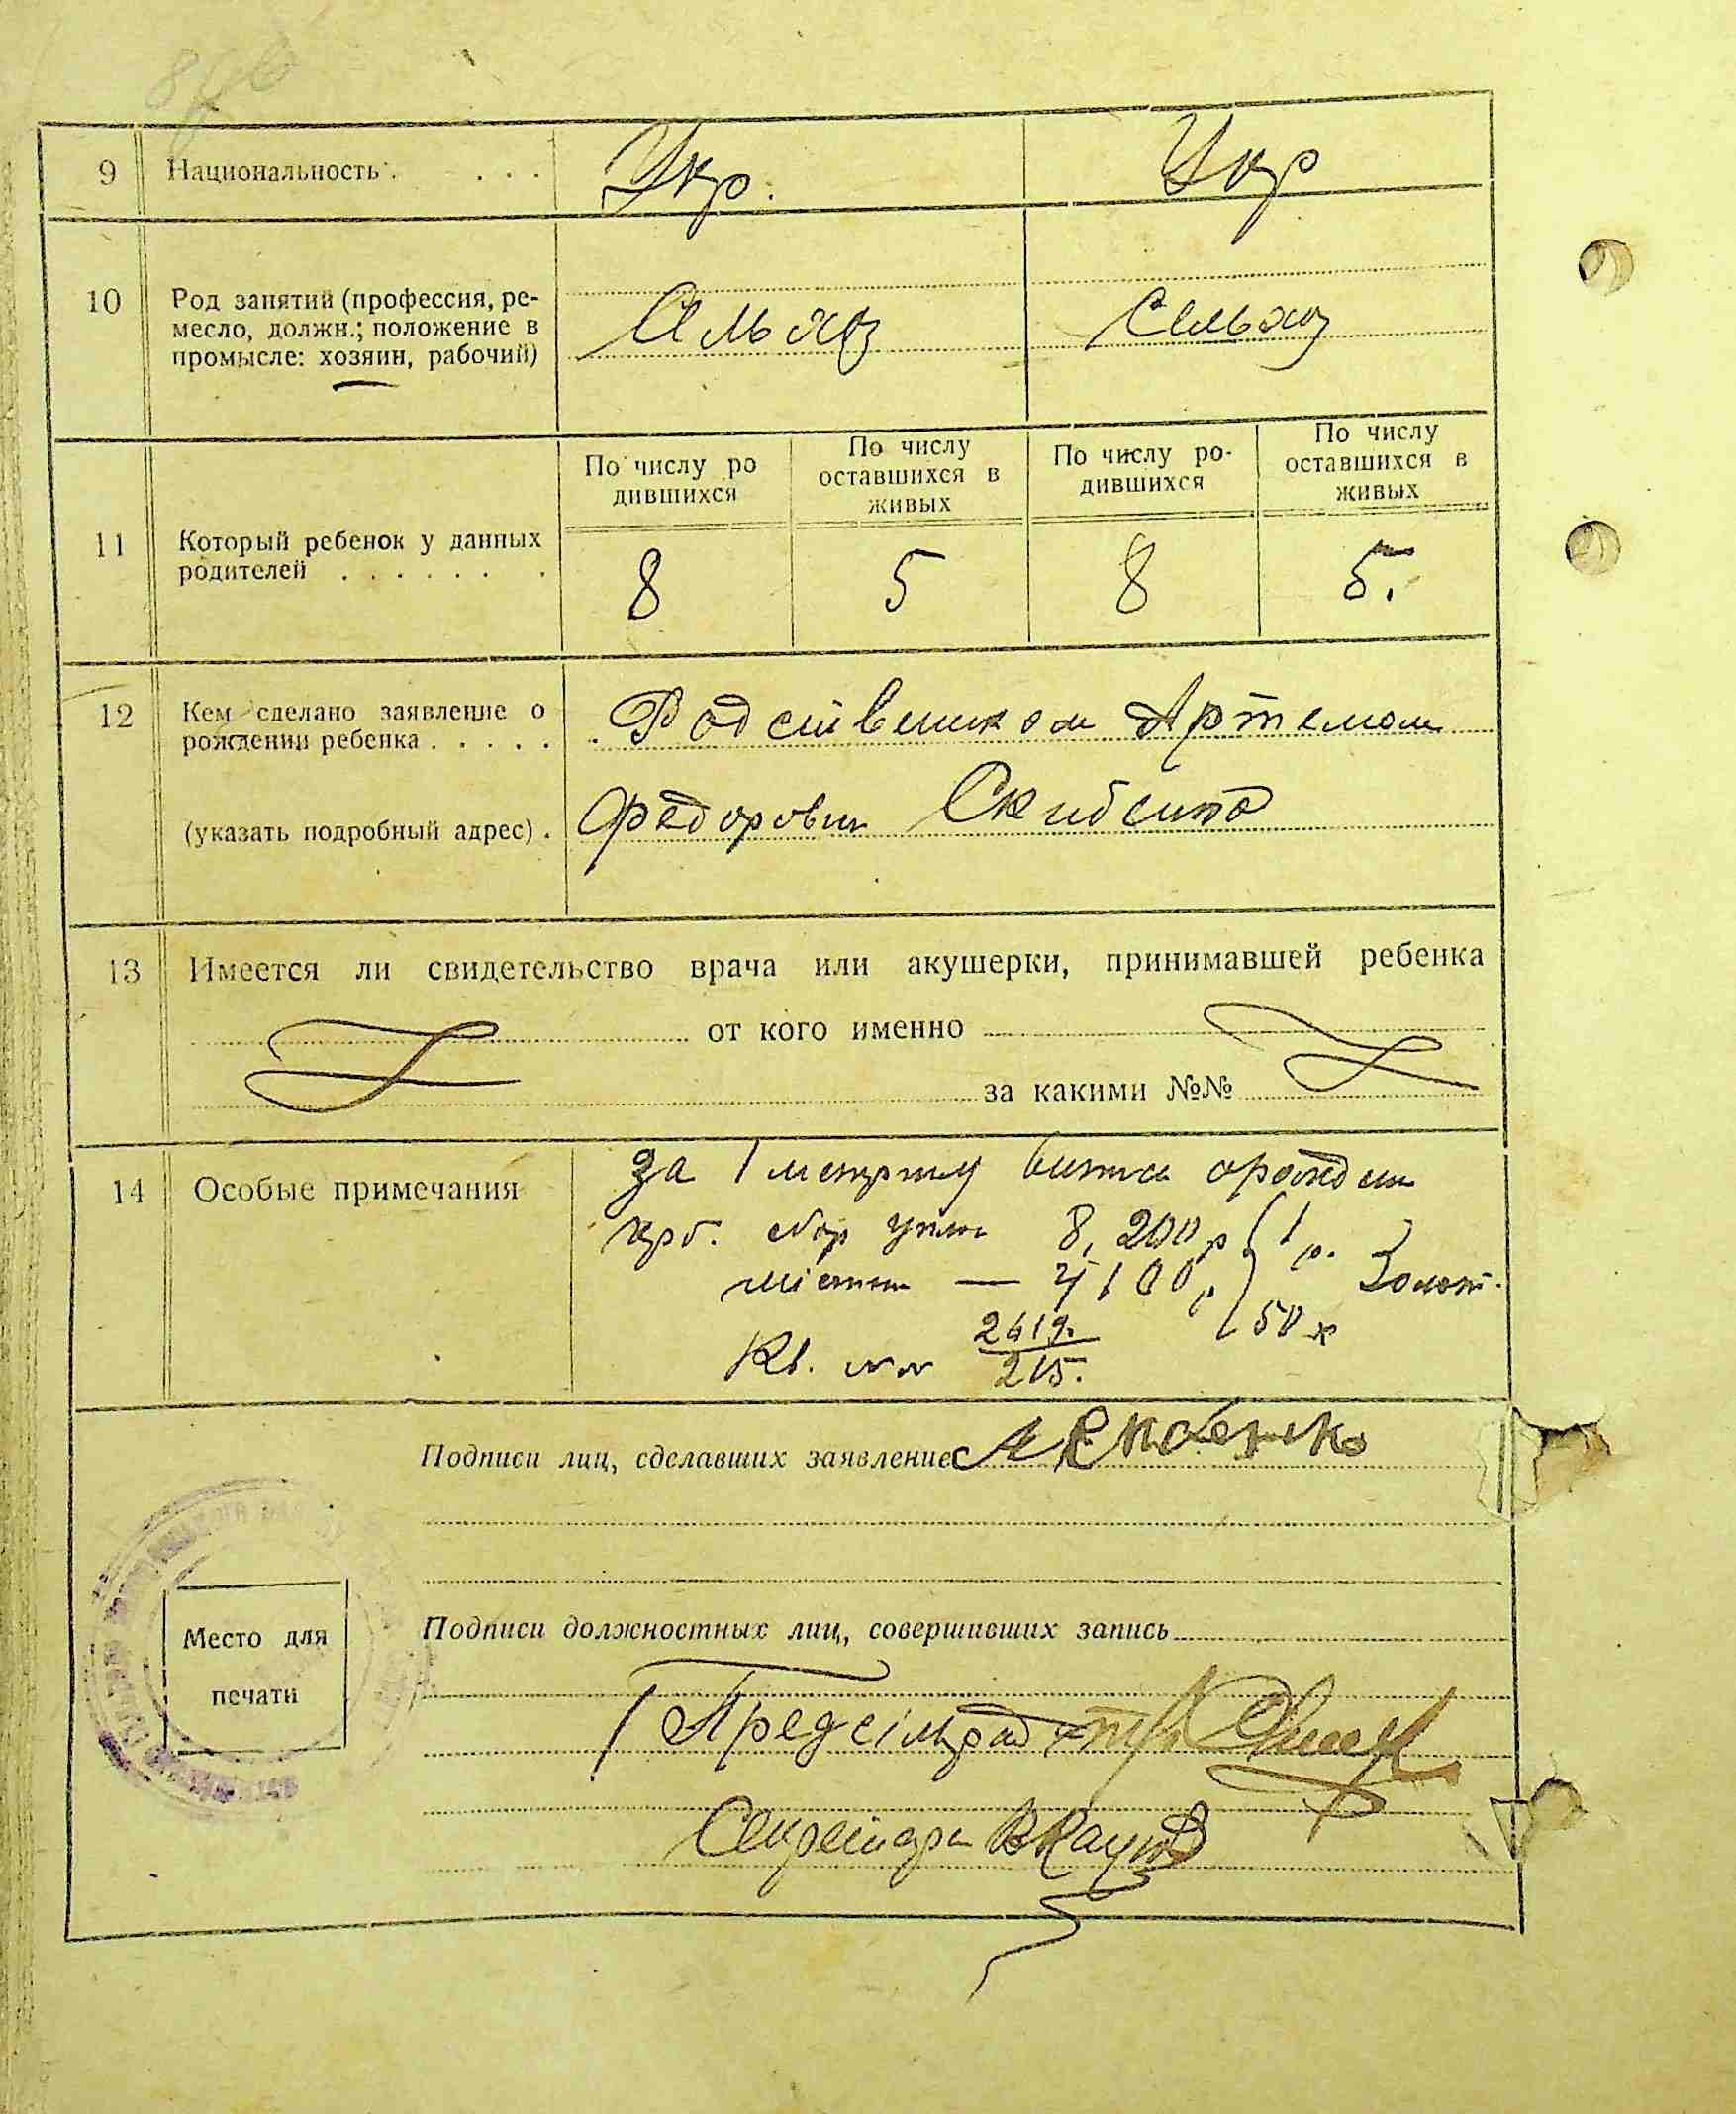 9 Национальность . . . . Укр. Укр
10 Род занятий (профессия, ре-
месло, должн.; положение в
промысле: хозяин, рабочий)
Сельхоз Сельхоз
По числу ро
дившихся
По числу
оставшихся в
живых
По числу ро-
дившихся
По числу
оставшихся в
живых
11 Который ребенок у данных
родителей . . . . . . .
8 5 8 5.
12 Кем сделано заявление о
рождении ребенка . . . . .
(указать подробный адрес) .
Родственником Артемом
Федорович Скибенко
13 Имеется ли свидетельство врача или акушерки, принимавшей ребенка
от кого именно
за какими №№
14 Особые примечания
За 1 метрику
сбор 8,200 р 1 р. Золот.
— 4100 р 50 к
Кв. №№ 2419.
215.
Подписи лиц, сделавших заявление
Подписи должностных лиц, совершивших запись
Место для
печати
Предсільрад
Секретарь